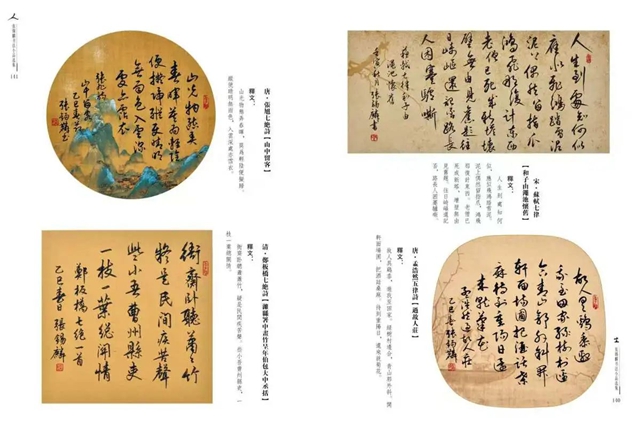 人生到處知何似
應似飛鴻踏雪泥
泥上偶然留指爪
鴻飛那復計東西
老僧已死成新塔
壞壁無由見舊題
往日崎嶇還記否路長
人困蹇驢嘶
蘇軾七律和子由
澠池懷舊
張錫麟書
宋·蘇軾七律
【和子由澠池懷舊】
釋文：
人生到處知何
似，應似飛鴻踏雪
泥。泥上偶然留指爪，鴻飛
那復計東西。老僧已
死成新塔，壞壁無由
見舊題。往日崎嶇還記
否，路長人困蹇驢嘶。
故人具雞黍邀
我至田家綠樹村邊
合青山郭外斜開
軒面場圃把酒話桑
麻待到重陽日還
來就菊花
孟浩然過故人莊
乙巳春張錫麟
唐·孟浩然五律詩【過故人莊】
釋文：
故人具雞黍，邀我至田家。綠樹村邊合，青山郭外斜。開
軒面場圃，把酒話桑麻。待到重陽日，還來就菊花。
140
山光物態弄
春暉莫為輕陰
便擬歸縱使晴明
無雨色入雲深
處亦沾衣
張旭詩
山中留客
乙巳春張錫麟書
唐·張旭七絶詩【山中留客】
釋文：
山光物態弄春暉，莫為輕陰便擬歸。
縱使晴明無雨色，入雲深處亦雪衣。
衙齋臥聽蕭蕭竹
疑是民間疾苦聲
些小吾曹州縣吏
一枝一葉總關情
鄭板橋七絶一首
乙巳春日張錫麟
清·鄭板橋七絶詩【濰縣署中畫竹呈年伯包大中丞括】
釋文：
衙齋臥聽蕭蕭竹，疑是民間疾苦聲。些小吾曹州縣吏，一
枝一葉總關情。
141